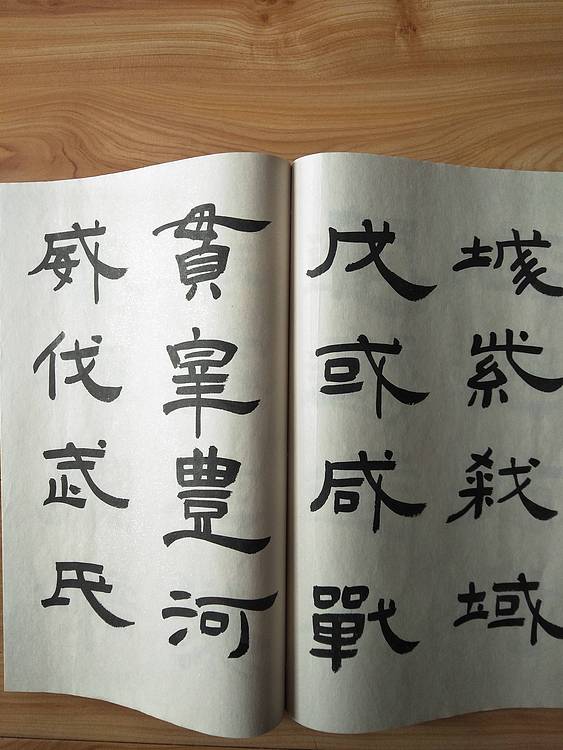 紫域
戊或咸戰
貫宰豊河
威伐武氏